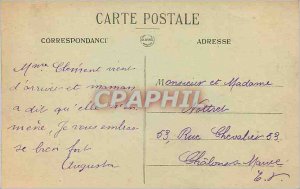 CARTE POSTALE
CORRESPONDANCE
ADRESSE
Mme Clément vient
d'arriver et maman
a dit qu'elle
Je vous embrasse
bien fort
Augusta
CPAPHIL
Monsieur et Madame
Nottret
53, Rue Chevalier 53
Châlons s Marne